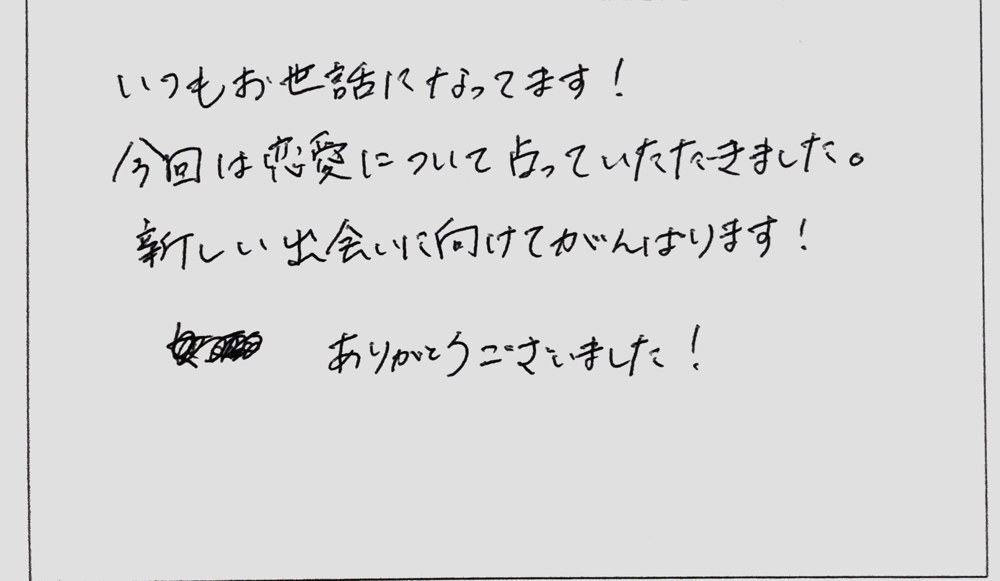 いつもお世話になってます！
今回は恋愛について占っていただきました。
新しい出会いに向けてがんばります！
ありがとうございました！